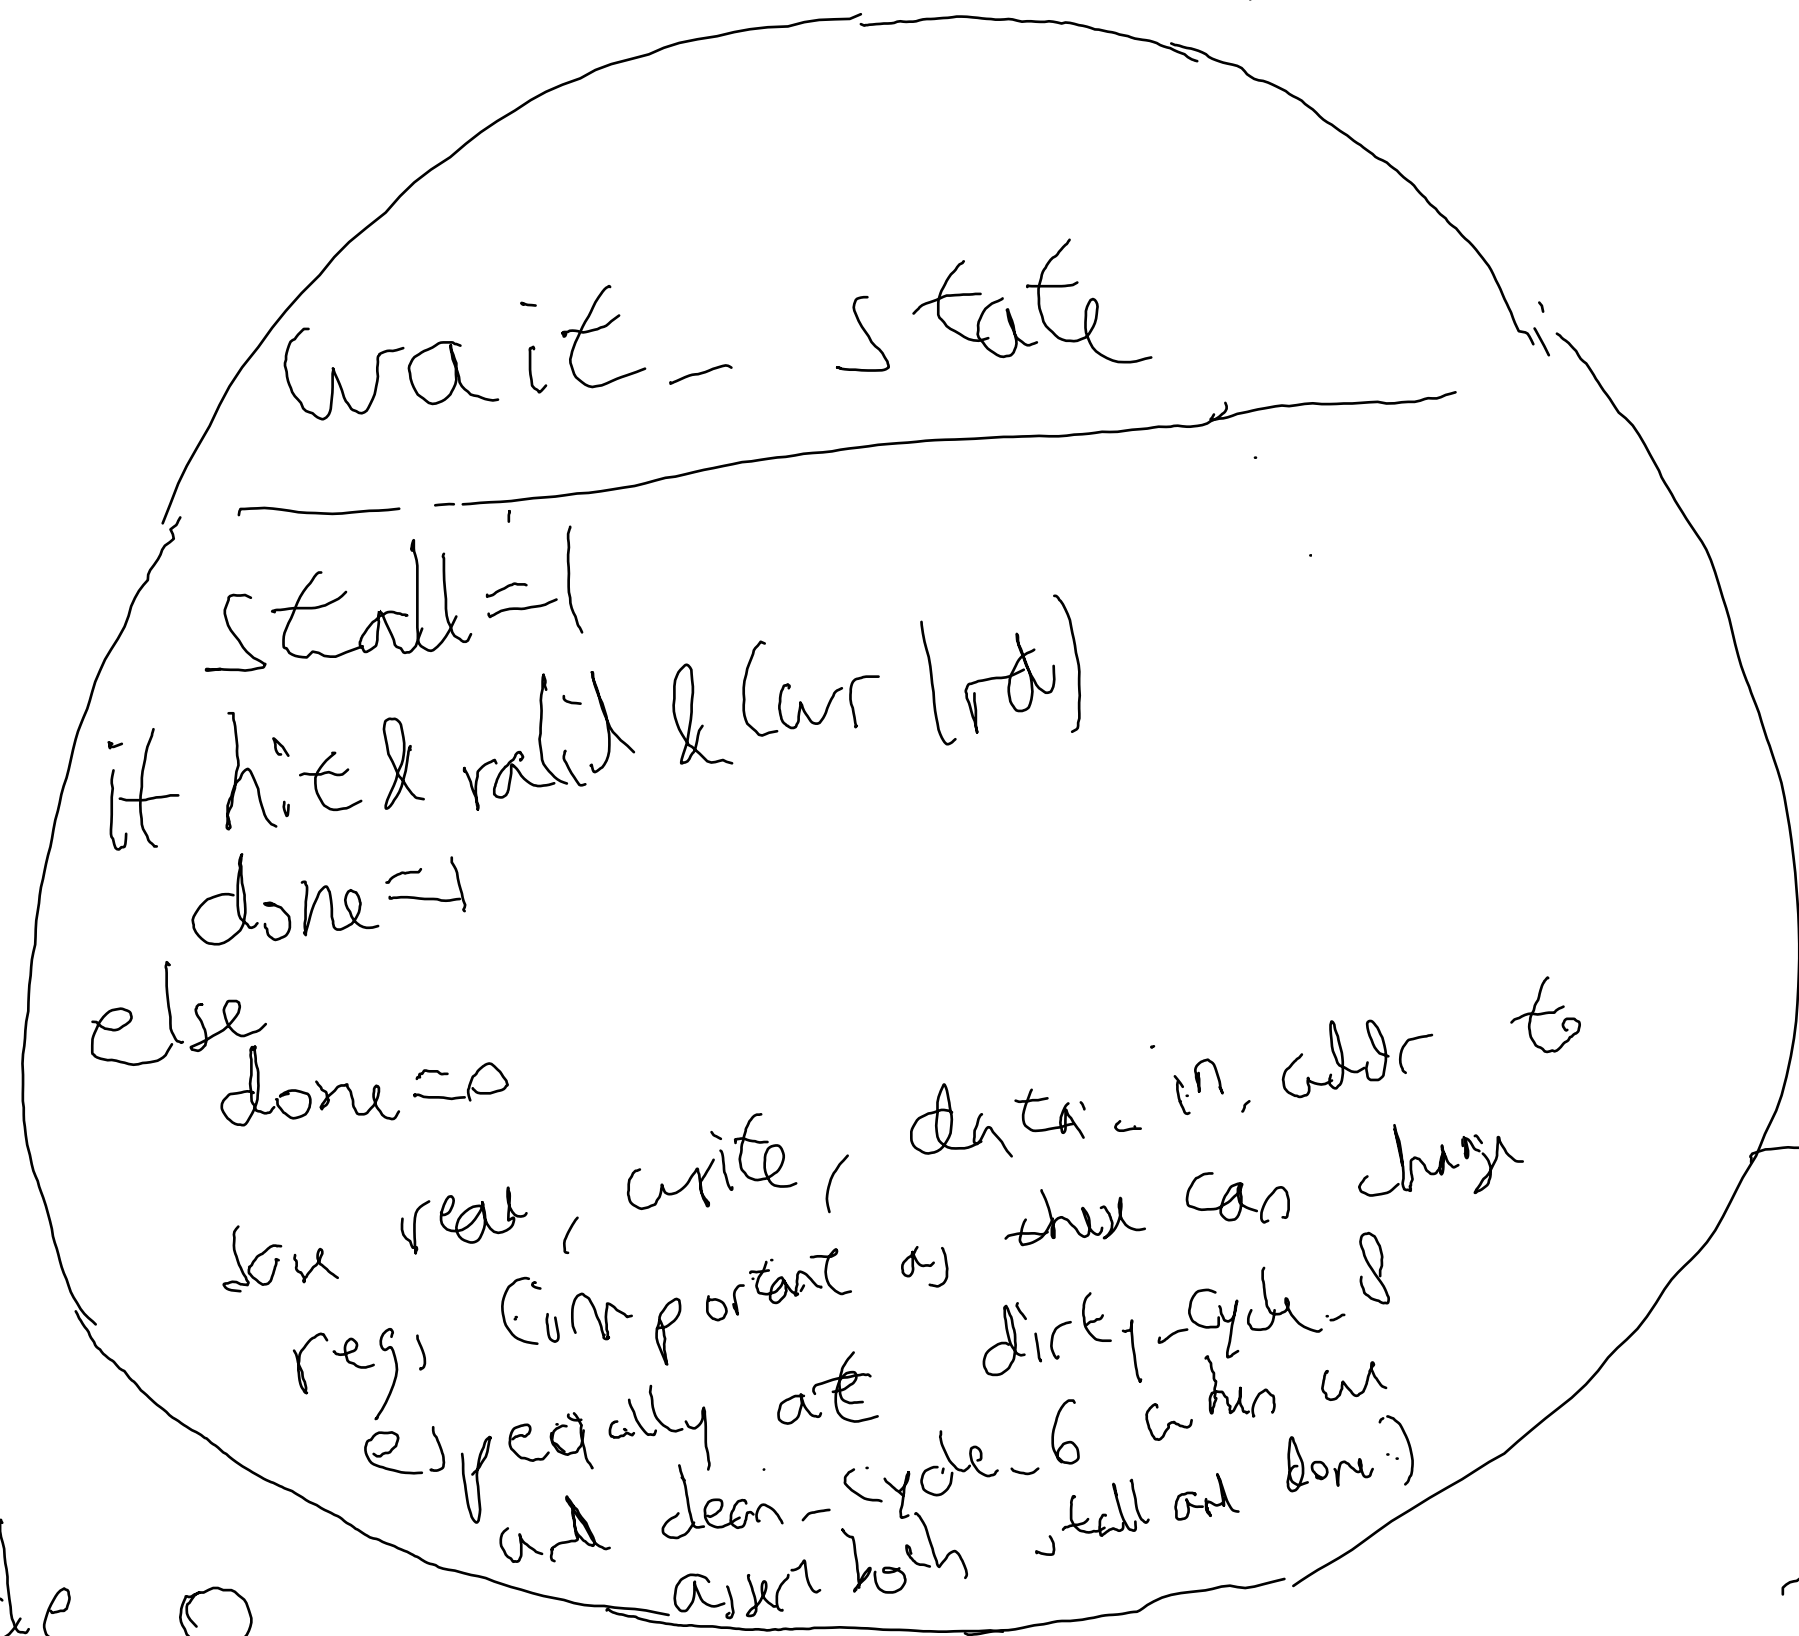 wait_state
stall=1
if hit & valid & (wr | rd)
done=1
else
done=0
save read, write, data_in, addr to
regs (important as these can change
especially at dirty_cycle_8
and clean_cycle_6 when we
assert both stall and done.)